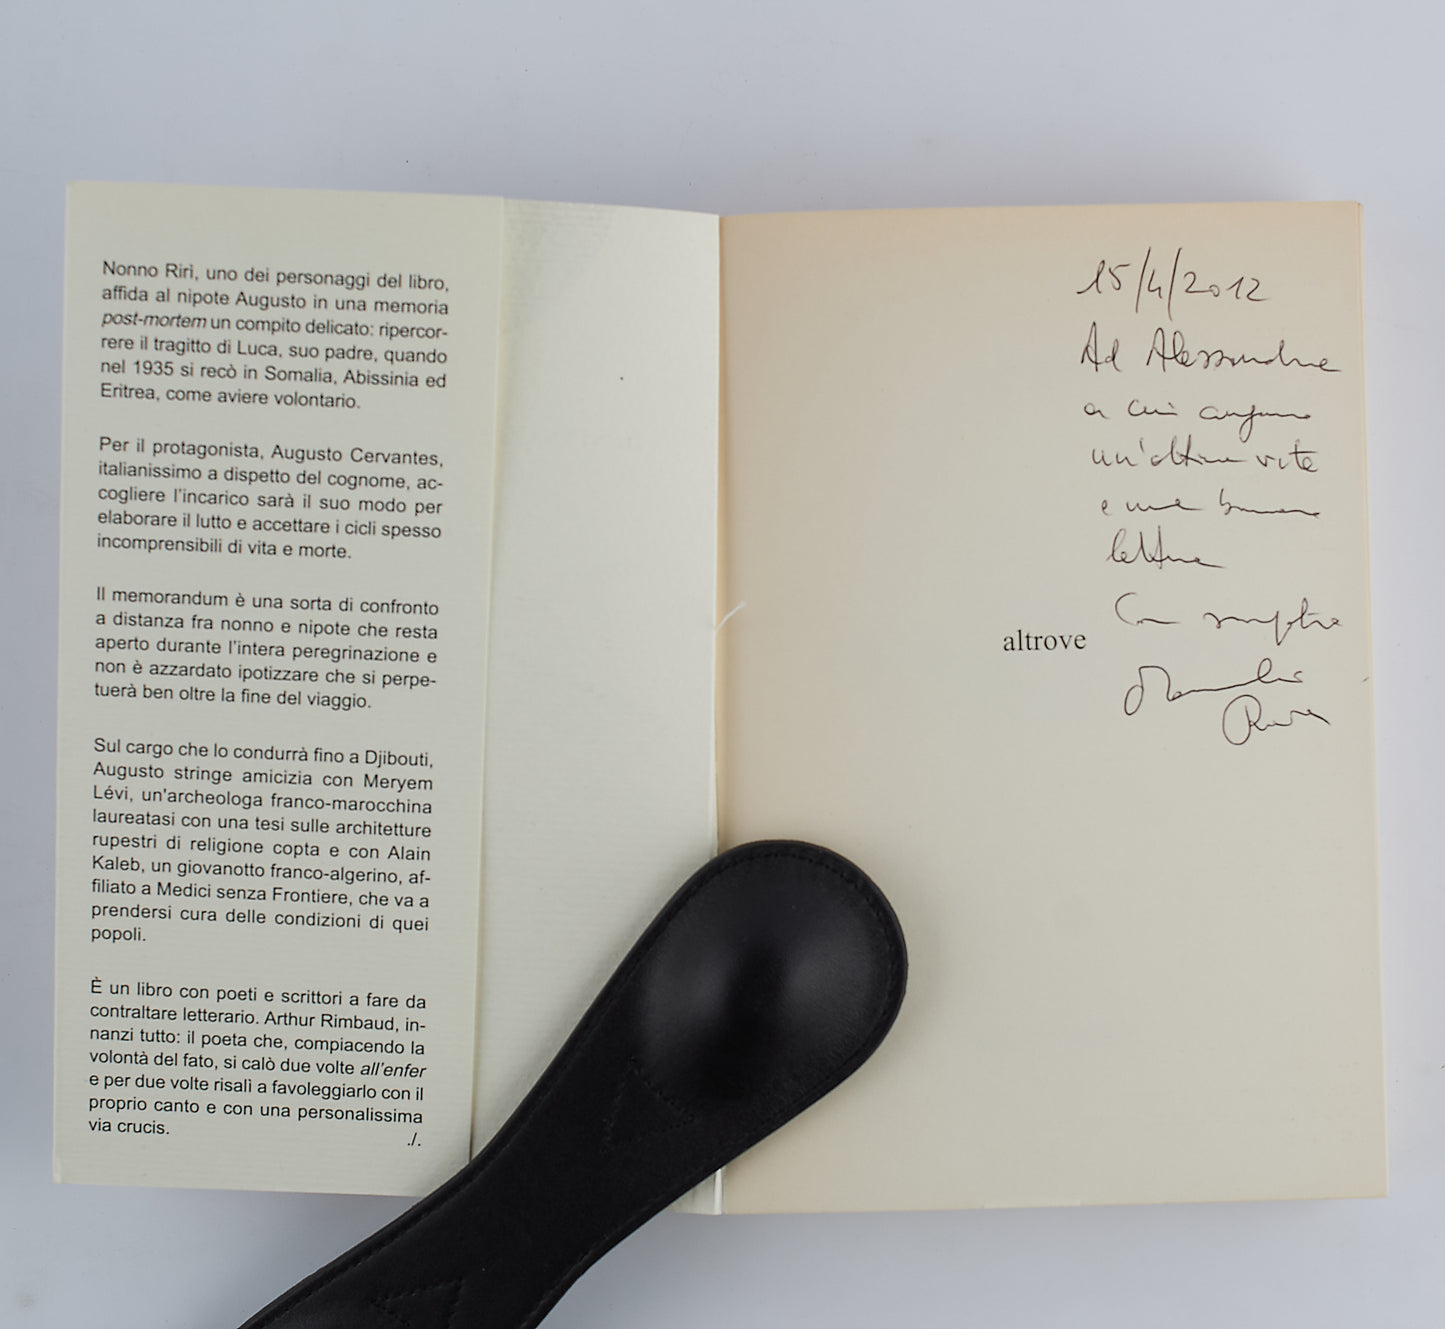 Nonno Rirì, uno dei personaggi del libro,
affida al nipote Augusto in una memoria
post-mortem un compito delicato: ripercor-
rere il tragitto di Luca, suo padre, quando
nel 1935 si recò in Somalia, Abissinia ed
Eritrea, come aviere volontario.
Per il protagonista, Augusto Cervantes,
italianissimo a dispetto del cognome, ac-
cogliere l'incarico sarà il suo modo per
elaborare il lutto e accettare i cicli spesso
incomprensibili di vita e morte.
Il memorandum è una sorta di confronto
a distanza fra nonno e nipote che resta
aperto durante l'intera peregrinazione e
non è azzardato ipotizzare che si perpe-
tuerà ben oltre la fine del viaggio.
Sul cargo che lo condurrà fino a Djibouti,
Augusto stringe amicizia con Meryem
Lévi, un'archeologa franco-marocchina
laureatasi con una tesi sulle architetture
rupestri di religione copta e con Alain
Kaleb, un giovanotto franco-algerino, af-
filiato a Medici senza Frontiere, che va a
prendersi cura delle condizioni di quei
popoli.
È un libro con poeti e scrittori a fare da
contraltare letterario. Arthur Rimbaud, in-
nanzi tutto: il poeta che, compiacendo la
volontà del fato, si calò due volte all'enfer
e per due volte risalì a favoleggiarlo con il
proprio canto e con una personalissima
via crucis.
./.
15/4/2012
Ad Alessandra
a cui auguro
un'ottima vita
e una buona
lettura
Con
altrove